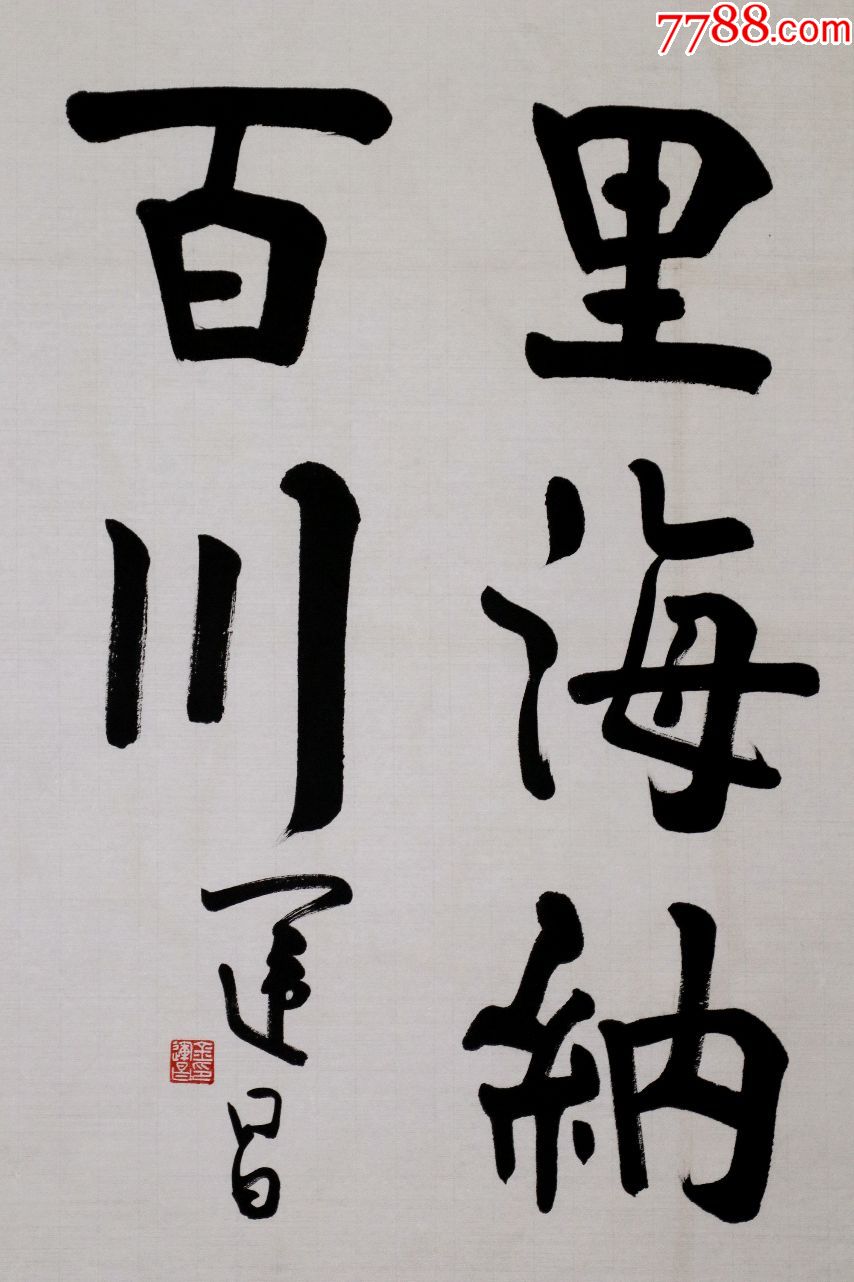 7788.com
里海納
百川
運昌